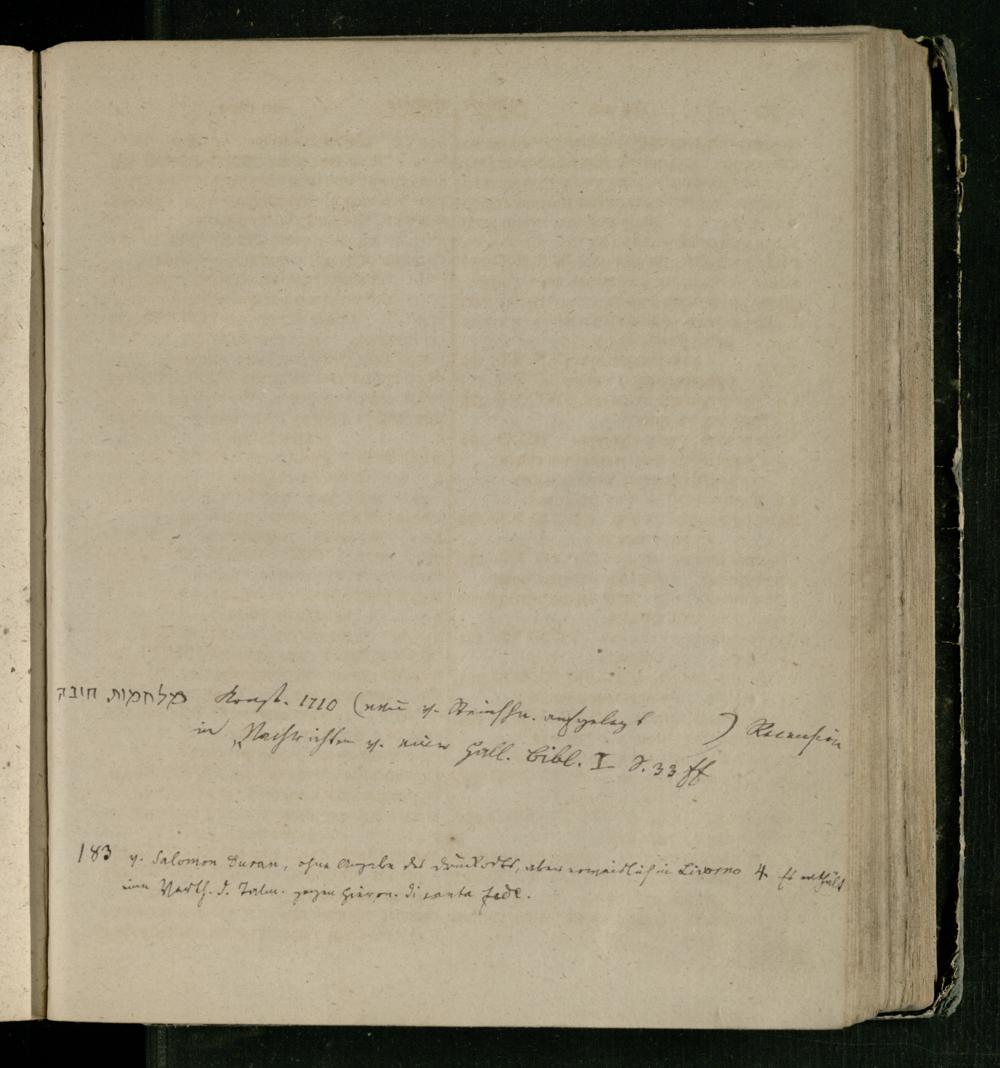 מלחמות חובה Const. 1710 (neu v. Steinschn. aufgelegt
in „Nachrichten v. einer Hall. Bibl. I S. 33 ff ) Recension
183 v. Salomon Duran, ohne Angabe des Druckorts, aber in Livorno 4. Es enthält
eine Verth. d. Talm. gegen Hieron. di santa fede.